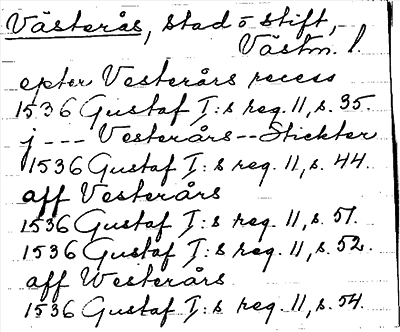 Västerås, stad o stift,
Västm. l.
epter Vesterårs recess
1536 Gustaf I:s reg. 11, s. 35.
j --- Vesterårs -- Stickter
1536 Gustaf I:s reg. 11, s. 44.
aff Vesterårs
1536 Gustaf I:s reg. 11, s. 51.
1536 Gustaf I:s reg. 11, s. 52.
aff Westerårs
1536 Gustaf I:s reg. 11, s. 54.